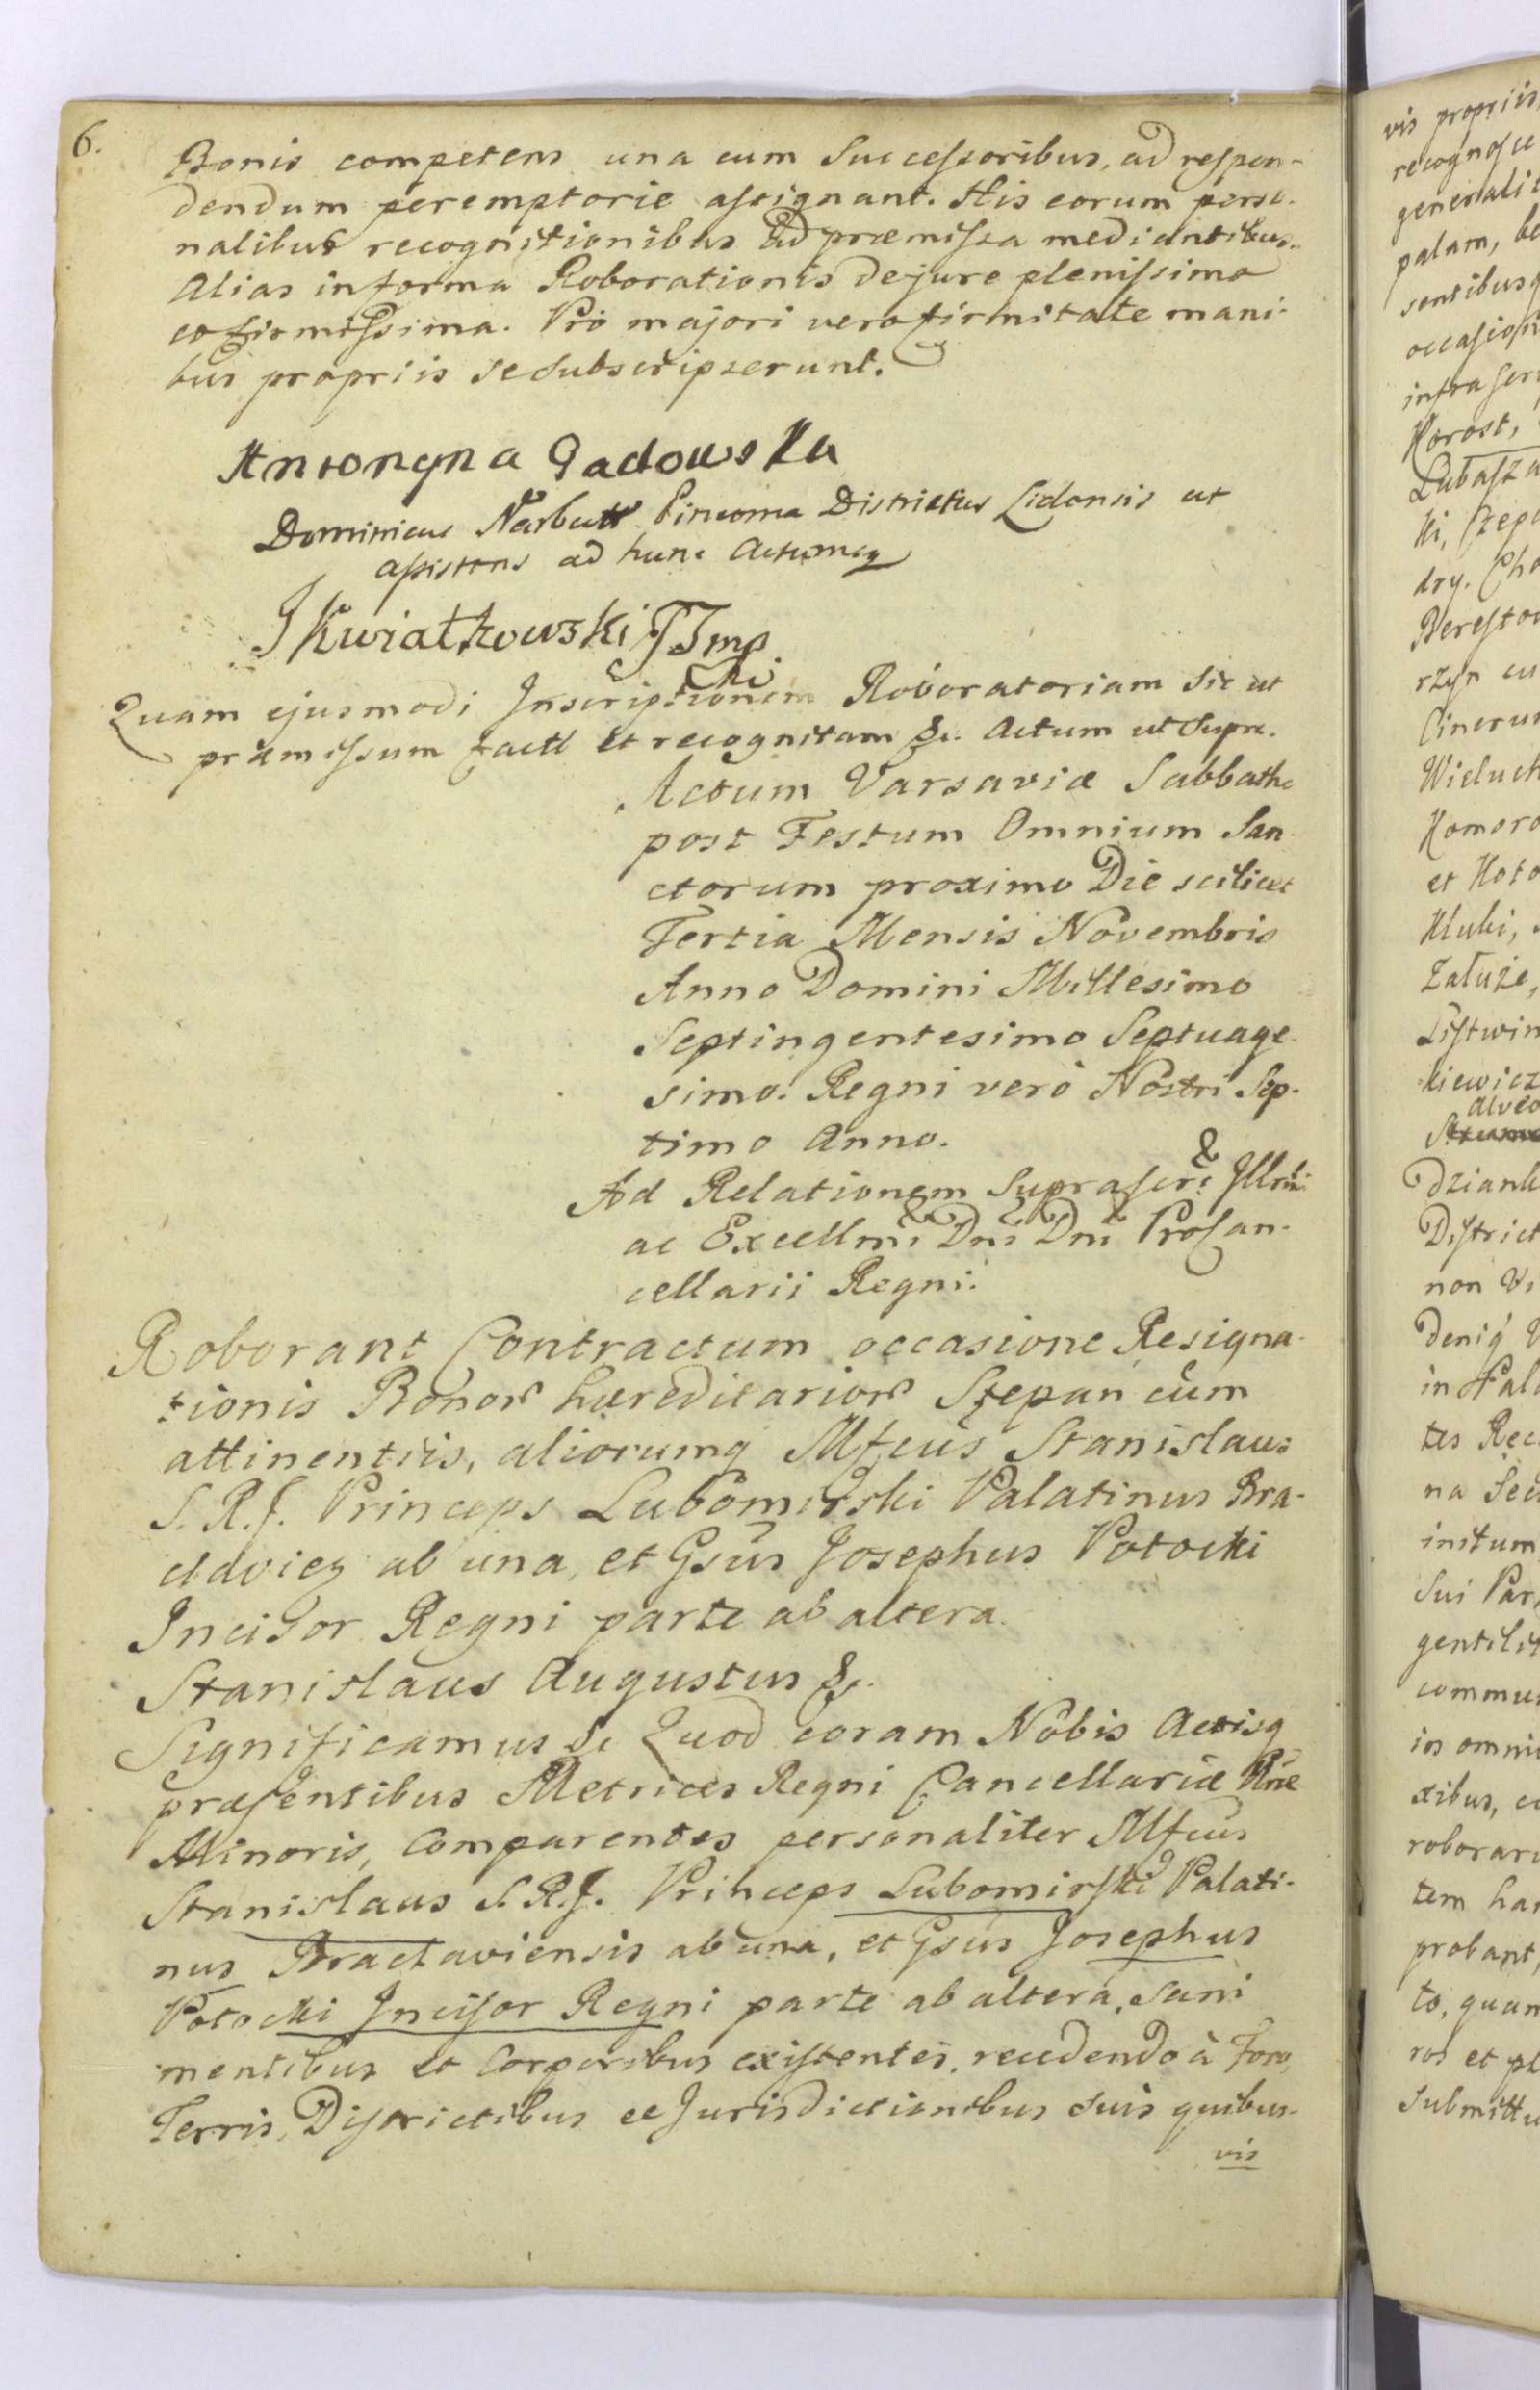 6.
Bonis competens una cum Successoribus, ad respon-
dendum peremptorie assignant. His eorum perso-
nalibus recognitionibus ad præmissa mediantibus.
Alias in forma Roborationis de jure plenissima
et firmissima. Pro majori vero firmitate mani-
bus propriis se subscripserunt.
Antonyna Gadowska
Dominicus Narbutt Pincerna Districtus Lidensis ut
assistens ad hunc Actum
J Kwiatkowski
Quam ejusmodi Inscriptionem Roboratoriam sic ut
præmissum factā et recognitam &c. Actum ut supra.
Actum Varsaviæ Sabbatho
post Festum Omnium San
ctorum proximo Die scilicet
Tertia Mensis Novembris
Anno Domini Millesimo
Septingentesimo Septuage-
simo. Regni verò Nostri Sep-
timo Anno.
Ad Relationem suprascri Illrmi
ac Excellmi Dni Dni Procan-
cellarii Regni.
Roborant Contractum occasione Resigna-
tionis Bonor hæreditarior Stepan cum
attinentiis, aliorumq Mfcus Stanislaus
S. R. J. Princeps Lubomirski Palatinus Bra-
claviens ab una, et Gsus Josephus Potocki
Incisor Regni parte ab altera.
Stanislaus Augustus &c.
Significamus &c Quod coram Nobis Actisq
præsentibus Metrices Regni Cancellariæ Rnæ
Minoris, Comparentes personaliter Mfcus
Stanislaus S. R. J. Princeps Lubomirski Palati-
nus Braclaviensis ab una, et Gsus Josephus
Potocki Incisor Regni parte ab altera, sani
mentibus et Corporibus existentes, recedendo à Foro,
Terris, Districtibus et Jurisdictionibus suis quibus-
vis
vis propriis
recognosce
generalit
palam,
sentibusq
occasion
infra scri
Horost,
Lubasz
ki, Czep
dry. Cho
Berestow
rzyn cu
Cineru
Wieluch
Homoro
et Hoto
Hluki,
Załuże,
Listwin
kiewicz
alveo
dziank
District
non
deniq
in Pala
tes Rec
na Sec
initum
sui Par
gentilit
commun
in omni
xibus,
roborar
tem ha
probant,
to, quam
ros et pl
submittu